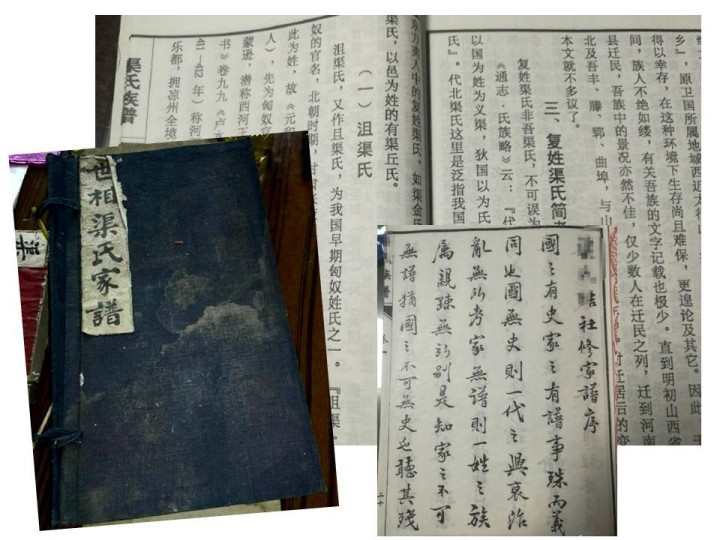 乡』，原卫国所属地域西近太行
得以幸存，在这种环境下生存尚且难保，更遑论及其它。因此
间，族人不绝如缕，有关吾族的文字记载也极少。直到明初山西省
县迁民，吾族中的景况亦然不佳，仅少数人在迁民之列，迁到河南
北及吾丰、滕、郓、曲埠，与山
本文就不多议了。
三、复姓渠氏简
复姓渠氏非吾渠氏，不可误为
《通志·氏族略》云：『代
以国为姓为义渠，狄国以为氏
氏』。代北渠氏这里是泛指我国
东方夷人中的复姓渠氏，如渠金氏
渠氏，以邑为姓的有渠丘氏。
（一）沮渠氏
沮渠氏，又作且渠氏，为我国早期匈奴姓氏之一。『沮渠
奴的官名，北朝时期，
此为姓，故《元和
人），先为匈奴官
蒙逊，潜称西河王
书》卷九九《卢水
年）称河
乐都，拥凉州全境
渠氏族谱
世相渠氏家譜
结社修家譜序
國之有史家之有譜事殊而義
同也國無史則一代之興衰治
亂無所考家無譜則一姓之族
属親疎無所别是知家之不可
無譜猶國之不可無史也聽其殘
二十
族譜